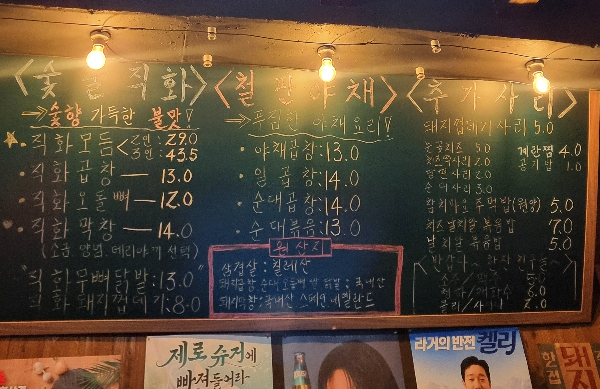 <숯불직화>
→숯향 가득한 불맛!
직화모듬< 2인: 29.0
3인: 43.5
· 직화 곱창 — 13.0
· 직화 오돌뼈 — 12.0
· 직화 막창 — 14.0
(소금, 양념, 데리야끼 선택)
"직화 무뼈닭발:13.0"
직화 돼지껍데기:8.0
<철판야채>
→푸짐한 야채요리!
· 야채곱창:13.0
· 알곱창:14.0
· 순대곱창:14.0
· 순대볶음:13.0
원산지
삼겹살:칠레산
돼지곱창, 순대, 오돌뼈, 닭발:국내산
돼지막창:국내산, 스페인, 네덜란드
<추가사리>
돼지껍데기사리 5.0
눈꽃치즈 5.0
치즈떡사리 2.0
당면사리 2.0
순대사리 3.0
계란찜 4.0
공기밥 1.0
참치마요 주먹밥(원앙) 5.0
치즈날치알 볶음밥 7.0
날치알 볶음밥 5.0
2.0
2.0
제로 슈거에
빠져들어라
라거의 반전 켈리
한접
돼지